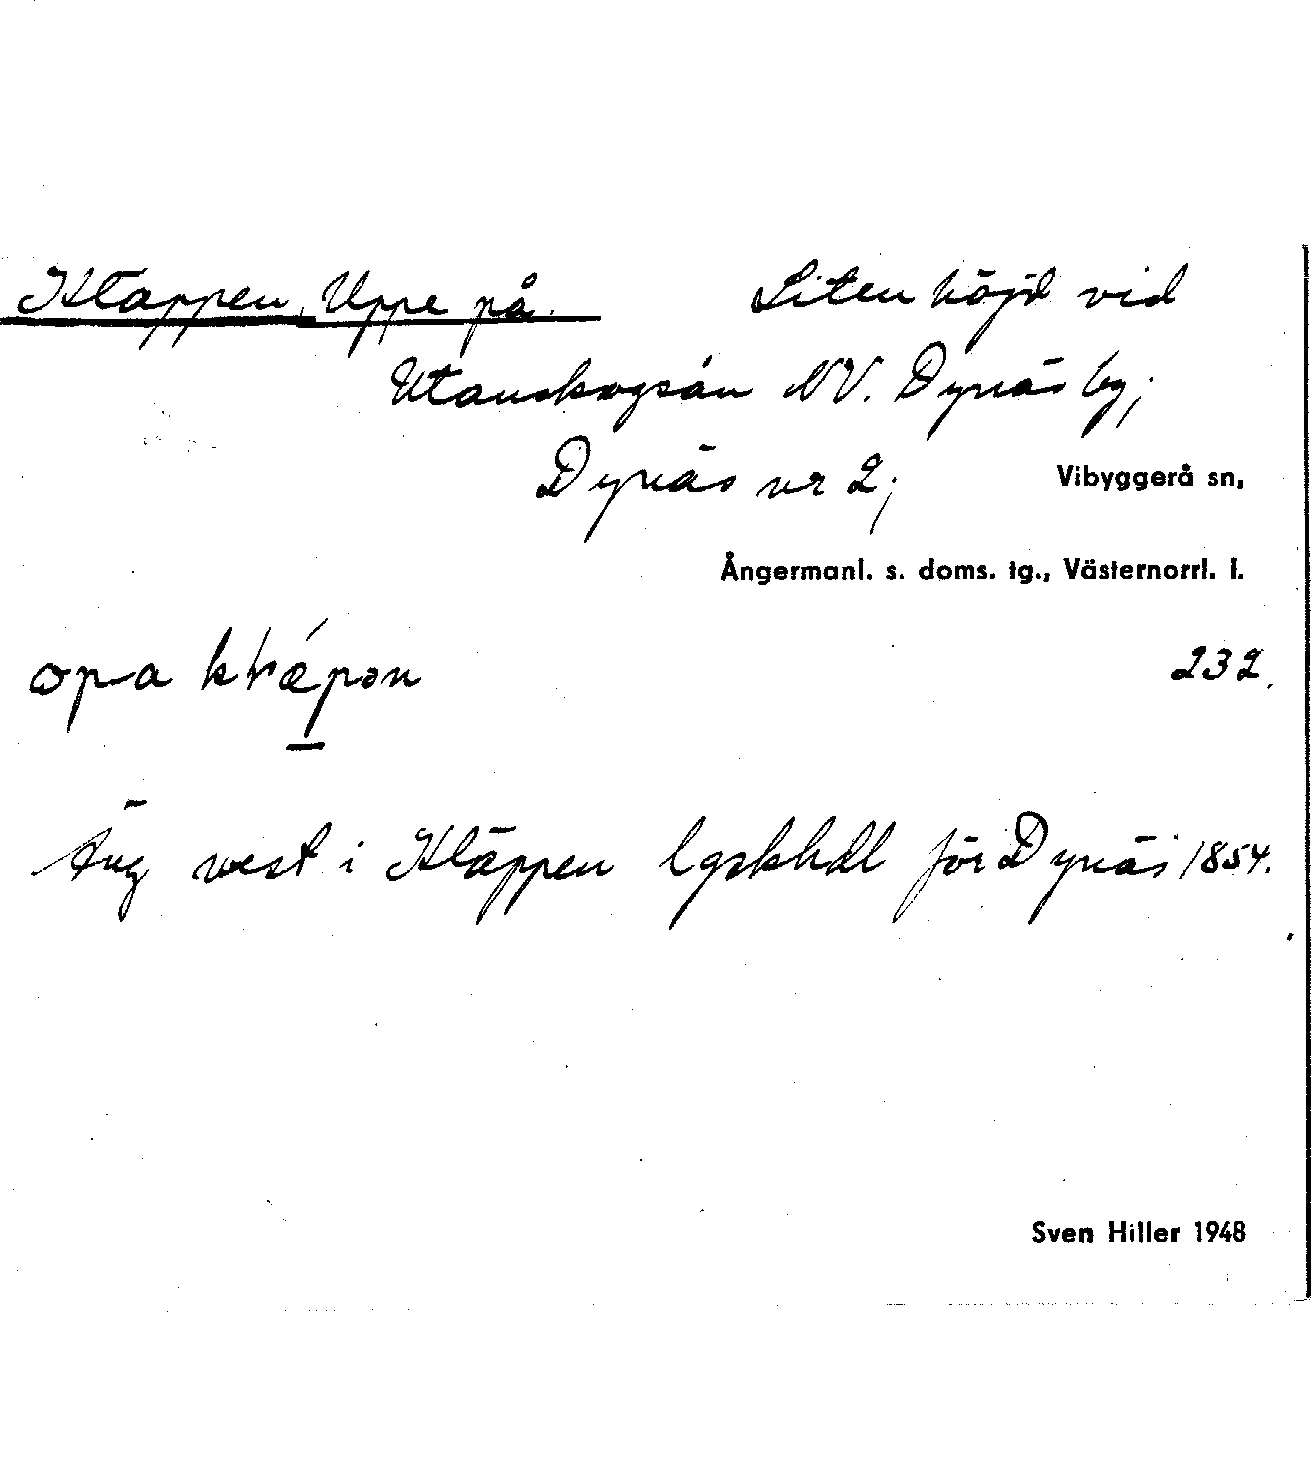 Kläppen, Uppe på. Liten höjd vid
Utanskogsån NV. Dynäs by;
Dynäs nr 2; Vibyggerå sn,
Ångermanl. s. doms. tg., Västernorrl. l.
opa 232.
Äng vest i Kläppen lgskhdl för Dynäs 1854.
Sven Hiller 1948